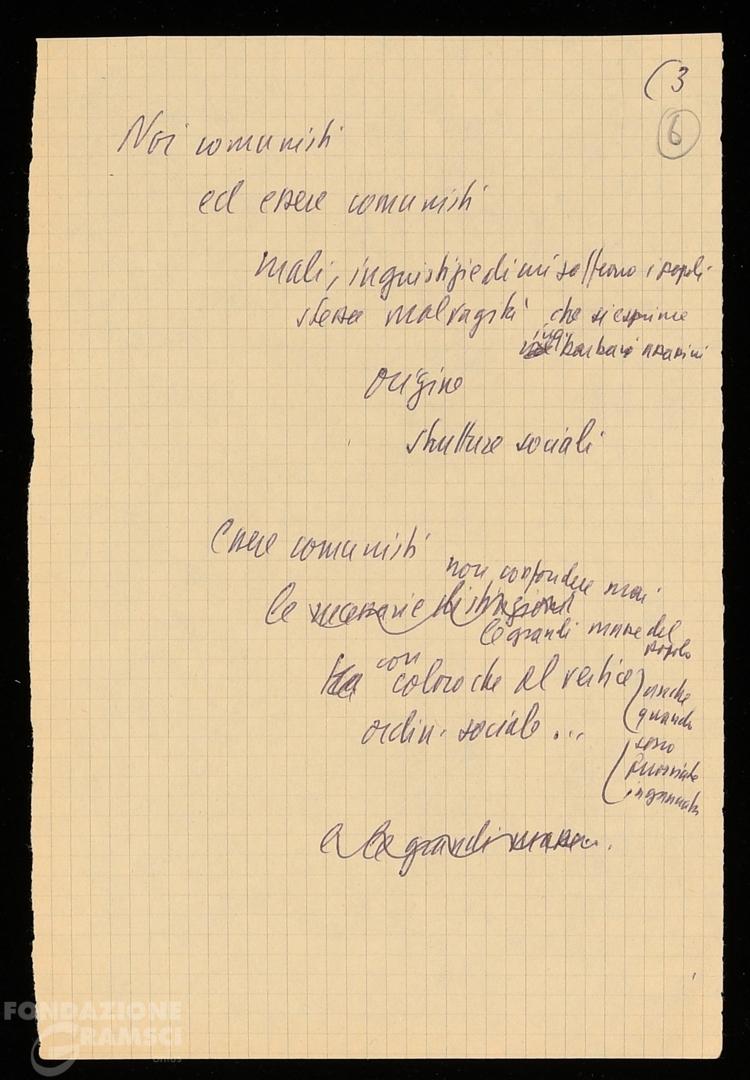 (3
6
Noi comunisti
ed essere comunisti
mali, ingiustizie di cui soffrono i popoli
stessa malvagità che si esprime
negli barbari nazisti
origine
strutture sociali
Essere comunisti
non confondere mai
le necessarie distinzioni
le grandi masse del
popolo
tra con coloro che al vertice
ordin. sociale ...
anche
quando
sono
ingannate
e le grandi masse.
FONDAZIONE
GRAMSCI
onlus